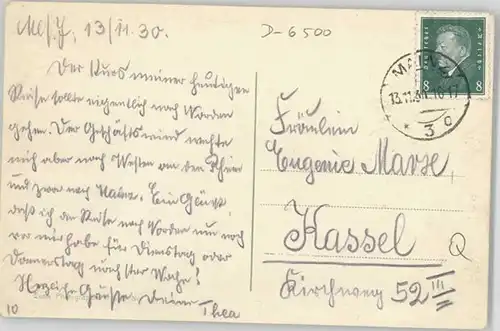 13/11.30.
D-6500
Der Kurs meiner heutigen
Reise sollte eigentlich nach Norden
gehen. Der Geschäftswind wehte
mich aber nach Westen an den Rhein
und zwar nach Mainz. Ein Glück,
daß ich die Reise nach Norden nur noch
vor mir habe für Dienstag oder
Donnerstag nächster Woche!
Herzliche Grüße Deine Thea
10
MAINZ
13.11.30. 16-17
* 3 c
8 8
Fräulein
Eugenie Marse,
Kassel
Kirchweg 52 III
Q